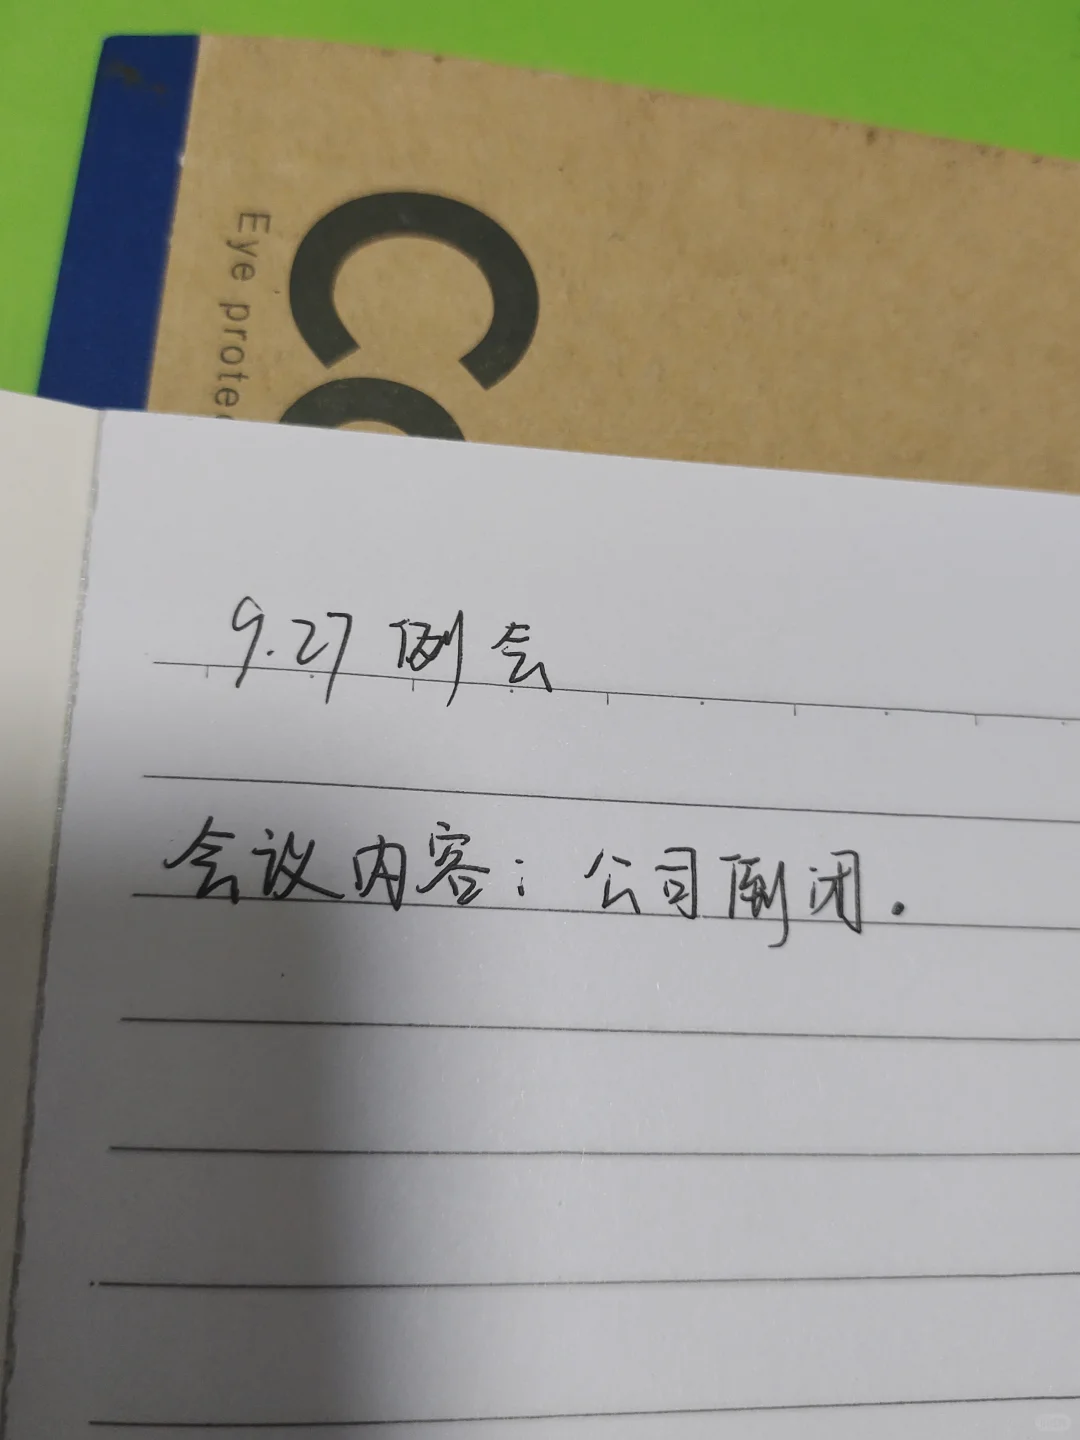 Eye protec
Co
9.27 例会
会议内容：公司倒闭.